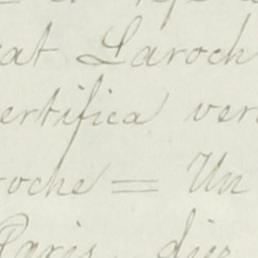 at Laroch
ertifica ver
roche = Un
Paris, dix